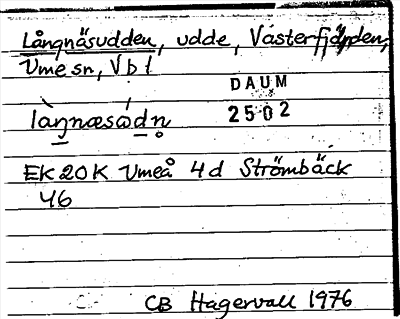 Långnäsudden, udde, Västerfjärden,
Umesn, Vbl
DAUM
2502
làŋnæsúdn̥
EK 20K Umeå 4d Strömbäck
46
CB Hagervall 1976